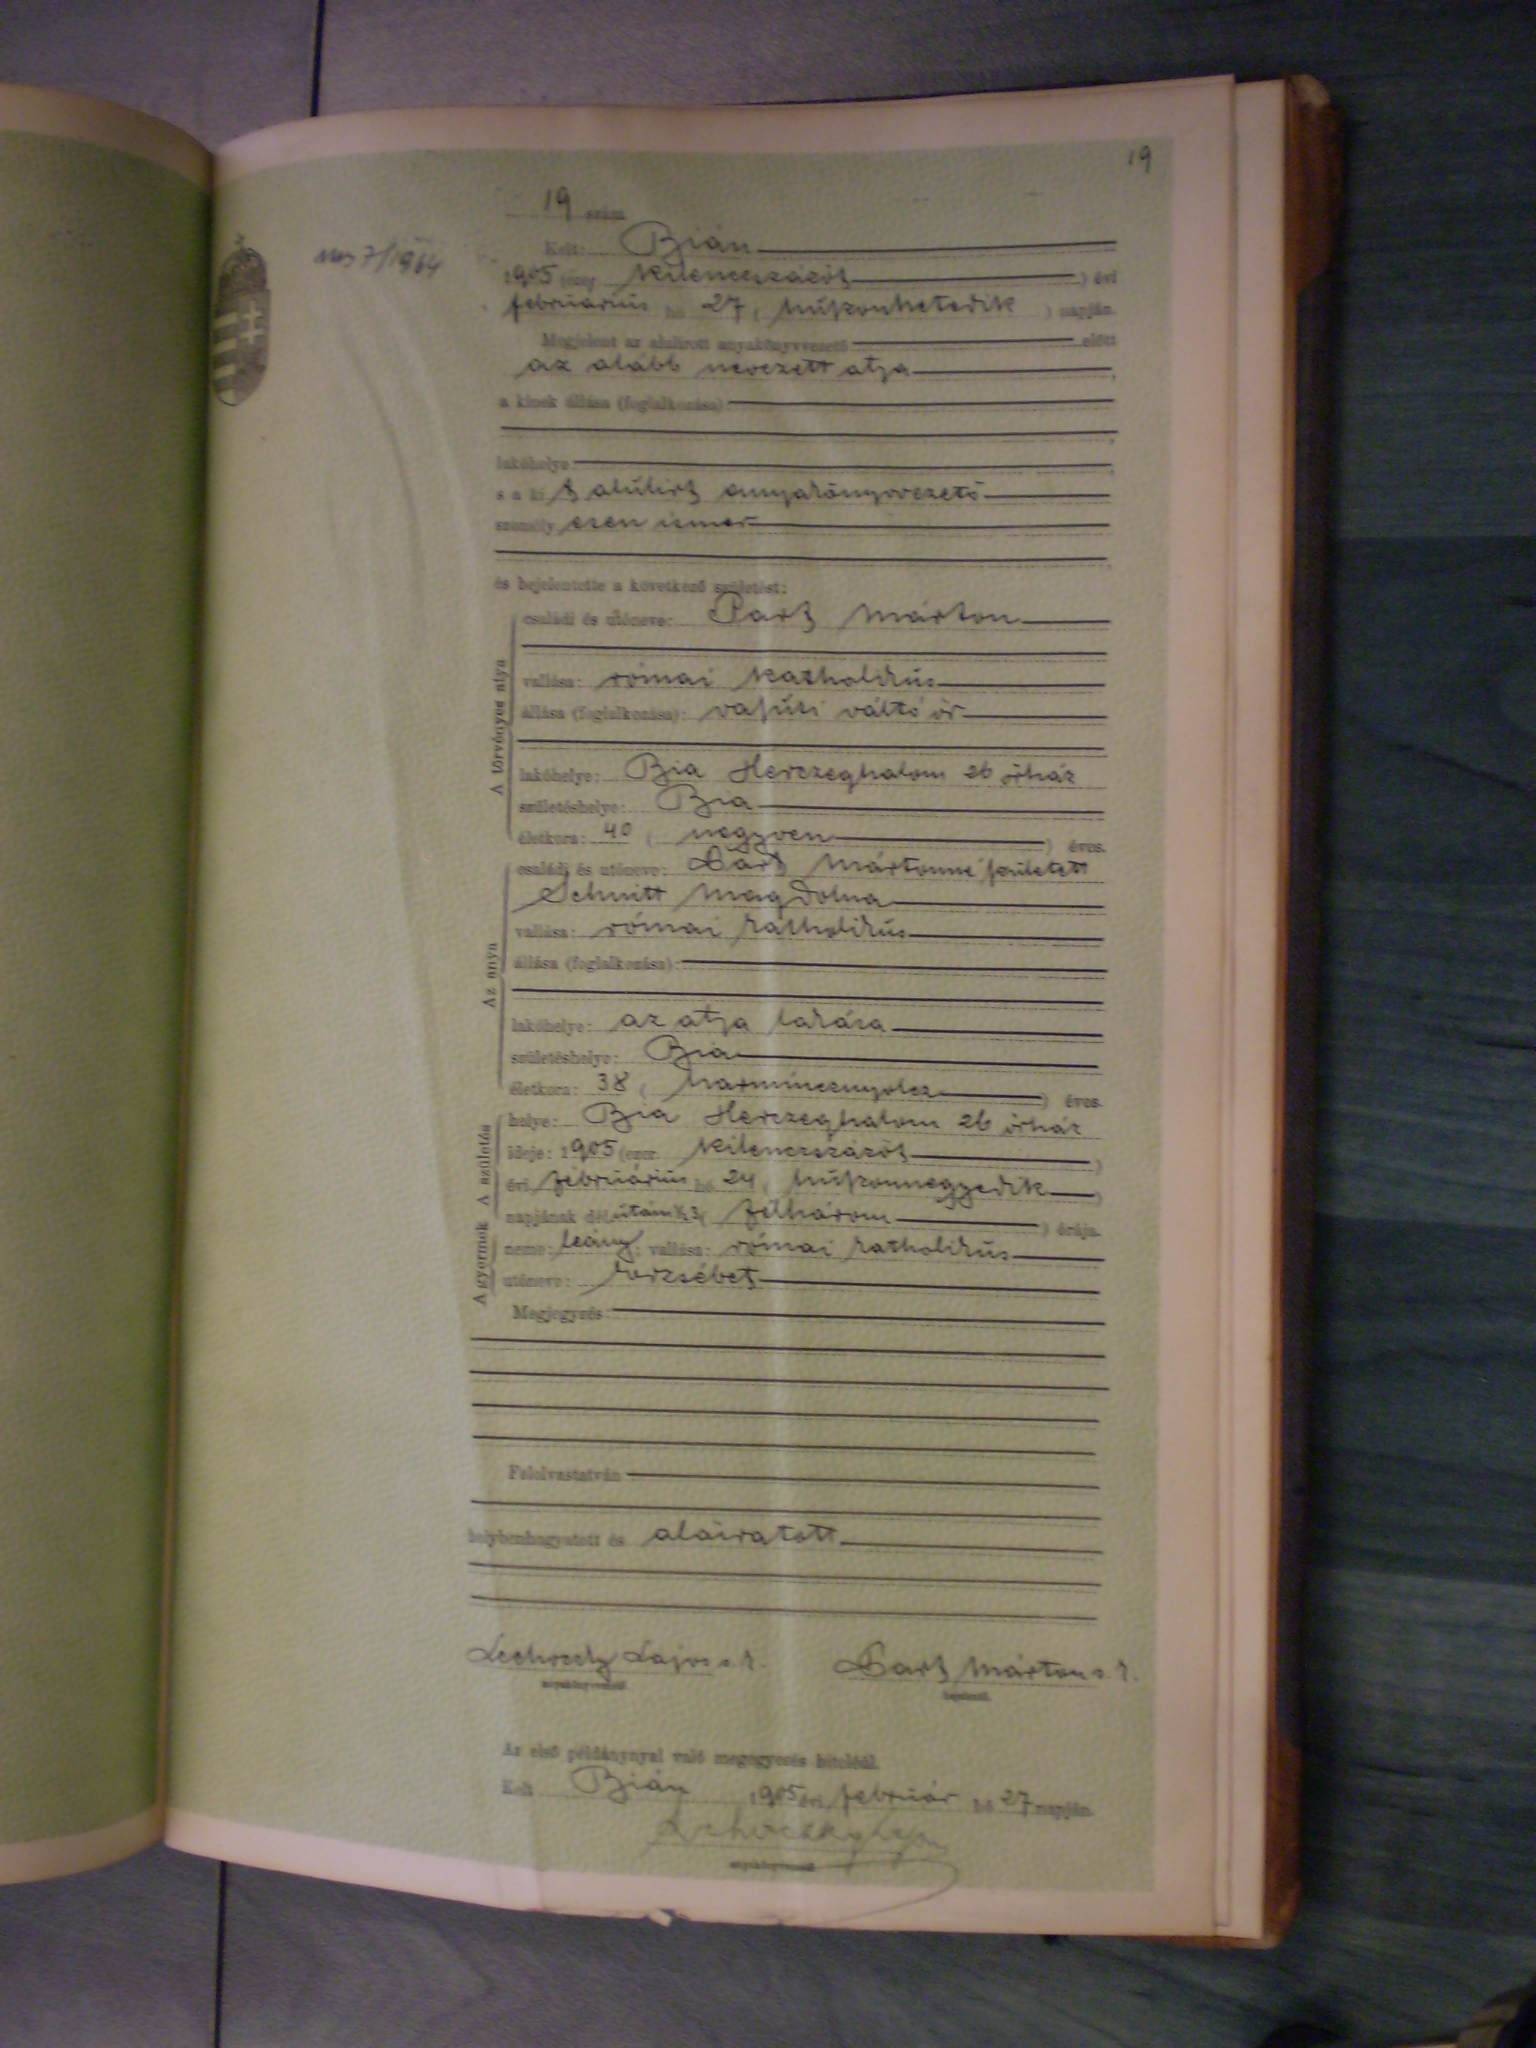 19
19 szám
Kelt: Bián
1905 (ezer kilenczszázöt) évi
februárius hó 27 (húszonhetedik) napján.
Megjelent az alulirott anyakönyvvezető előtt
az alább nevezett atya,
a kinek állása (foglalkozása):
lakóhelye:
s a kit alulirt anyakönyvvezető
személyesen ismer
és bejelentette a következő születést:
A törvényes atya
családi és utóneve: Part Márton
vallása: római katholikus
állása (foglalkozása): vasúti váltó őr
lakóhelye: Bia Herczeghalom 26 őrház
születéshelye: Bia
életkora: 40 (negyven) éves.
Az anya
családi és utóneve: Mártonné született
Schmitt Magdolna
vallása: római katholikus
állása (foglalkozása):
lakóhelye: az atya lakása
születéshelye: Bia
életkora: 38 (harmincznyolcz) éves.
A gyermek A születés
helye: Bia Herczeghalom 26 őrház
ideje: 1905 (ezer kilenczszázöt)
évi februárius hó 24 (húszonnegyedik)
napjának délután ½3 (félhárom) órája.
neme: leány; vallása: római katholikus
utóneve: Erzsébet
Megjegyzés:
Felolvastatván
helybenhagyatott és aláiratott
Lajos s. k. Márton s. k.
anyakönyvvezető bejelentő.
Az első példánynyal való megegyezés hiteléül.
Kelt Bián 1905 évi február hó 27 napján.
anyakönyvvezető